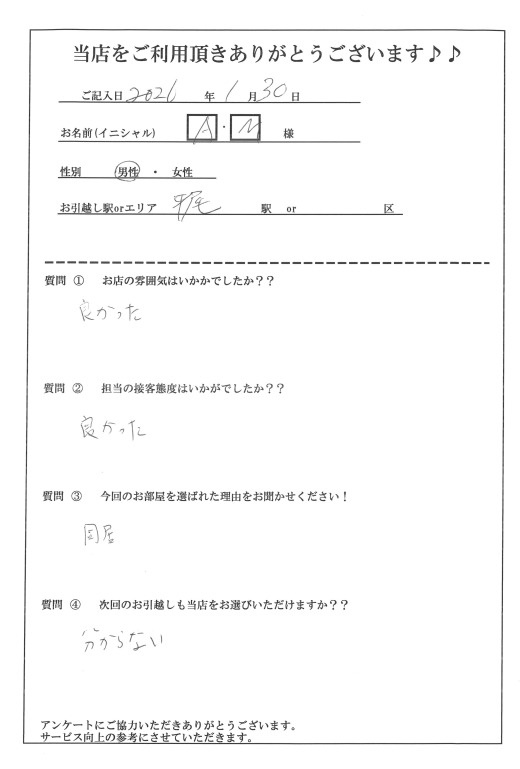 当店をご利用頂きありがとうございます♪♪
ご記入日 2026 年 1 月 30 日
お名前(イニシャル) A ・ M 様
性別 男性 ・ 女性
お引越し駅orエリア 平尾 駅 or 区
質問 ① お店の雰囲気はいかかでしたか？？
良かった
質問 ② 担当の接客態度はいかがでしたか？？
良かった
質問 ③ 今回のお部屋を選ばれた理由をお聞かせください！
同居
質問 ④ 次回のお引越しも当店をお選びいただけますか？？
分からない
アンケートにご協力いただきありがとうございます。
サービス向上の参考にさせていただきます。